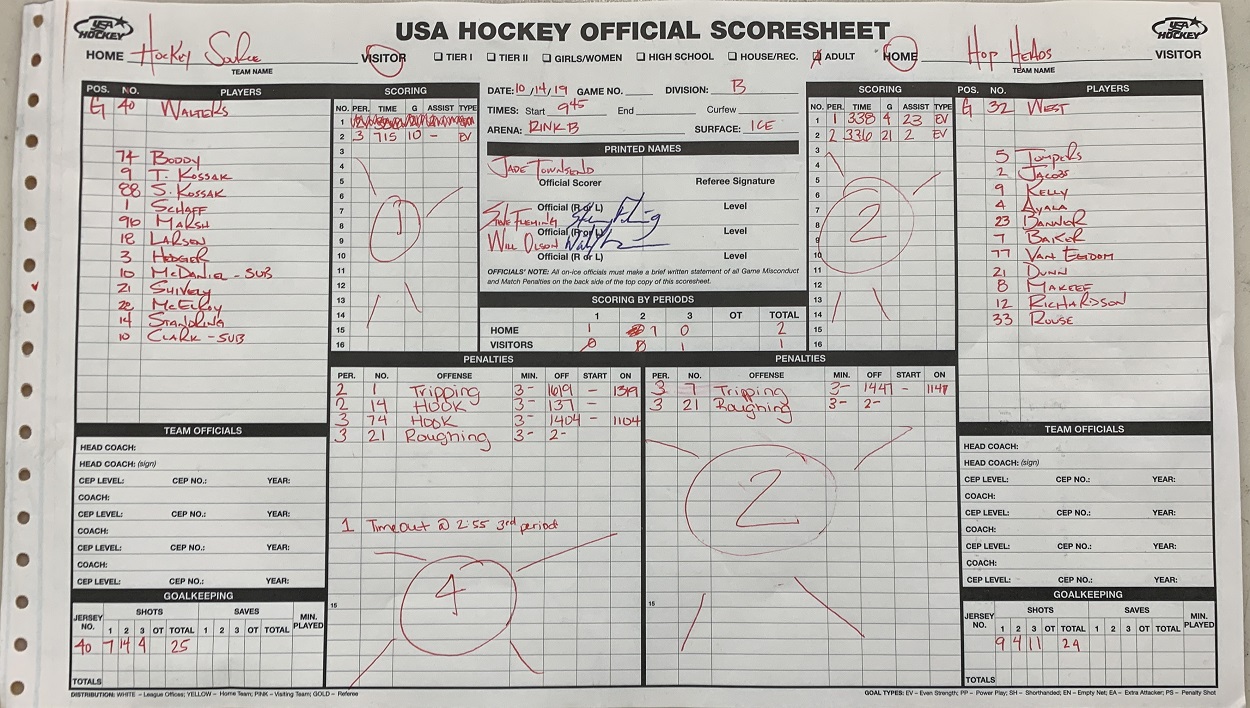 USA HOCKEY
USA HOCKEY OFFICIAL SCORESHEET
USA HOCKEY
HOME Hockey VISITOR ☐ TIER I ☐ TIER II ☐ GIRLS/WOMEN ☐ HIGH SCHOOL ☐ HOUSE/REC. ☒ ADULT HOME Hop Heads VISITOR
TEAM NAME TEAM NAME
POS. NO. PLAYERS
G 40 WALTERS
74 BODDY
9 T. KOSSAK
88 S. KOSSAK
1 SCHAFF
96 MARSH
18 LARSEN
3 HEDGER
10 McDANIEL - SUB
21 SHIVELY
28 McELROY
14 STANDRING
10 CLARK - SUB
SCORING
NO. PER. TIME G ASSIST TYPE
1
2 3 715 10 - EV
3
4
5
6
7
8
9
10
11
12
13
14
15
16
1
DATE: 10/14/19 GAME NO. DIVISION: B
TIMES: Start 945 End Curfew
ARENA: RINK B SURFACE: ICE
PRINTED NAMES
JADE TOWNSEND
Official Scorer Referee Signature
Official (R or L) Level
STEVE FLEMING
Official (R or L) Level
WILL OLSON
Official (R or L) Level
OFFICIALS' NOTE: All on-ice officials must make a brief written statement of all Game Misconduct
and Match Penalties on the back side of the top copy of this scoresheet.
SCORING BY PERIODS
1 2 3 OT TOTAL
HOME 1 1 0 2
VISITORS 0 0 1 1
SCORING
NO. PER. TIME G ASSIST TYPE
1 1 338 4 23 EV
2 2 336 21 2 EV
3
4
5
6
7
8
9
10
11
12
13
14
15
16
2
POS. NO. PLAYERS
G 32 WEST
5
2 JACOBS
9 KELLY
4 AYALA
23 BANNER
7 BAKER
77 VAN EGDOM
21 DUNN
8 MAKEEF
12 RICHARDSON
33 ROUSE
PENALTIES
PER. NO. OFFENSE MIN. OFF START ON
2 1 Tripping 3- 1619 - 1319
2 14 HOOK 3- 137 -
3 74 HOOK 3- 1404 - 1104
3 21 Roughing 3- 2-
1 Timeout @ 2:55 3rd period
4
15
PENALTIES
PER. NO. OFFENSE MIN. OFF START ON
3 7 Tripping 3- 1447 - 1147
3 21 Roughing 3- 2-
2
15
TEAM OFFICIALS
HEAD COACH:
HEAD COACH: (sign)
CEP LEVEL: CEP NO.: YEAR:
COACH:
CEP LEVEL: CEP NO.: YEAR:
COACH:
CEP LEVEL: CEP NO.: YEAR:
COACH:
CEP LEVEL: CEP NO.: YEAR:
GOALKEEPING
JERSEY NO. SHOTS SAVES MIN. PLAYED
1 2 3 OT TOTAL 1 2 3 OT TOTAL
40 7 14 4 25
TOTALS
TEAM OFFICIALS
HEAD COACH:
HEAD COACH: (sign)
CEP LEVEL: CEP NO.: YEAR:
COACH:
CEP LEVEL: CEP NO.: YEAR:
COACH:
CEP LEVEL: CEP NO.: YEAR:
COACH:
CEP LEVEL: CEP NO.: YEAR:
GOALKEEPING
JERSEY NO. SHOTS SAVES MIN. PLAYED
1 2 3 OT TOTAL 1 2 3 OT TOTAL
9 4 11 24
TOTALS
DISTRIBUTION: WHITE – League Offices; YELLOW – Home Team; PINK – Visiting Team; GOLD – Referee
GOAL TYPES: EV – Even Strength; PP – Power Play; SH – Shorthanded; EN – Empty Net; EA – Extra Attacker; PS – Penalty Shot